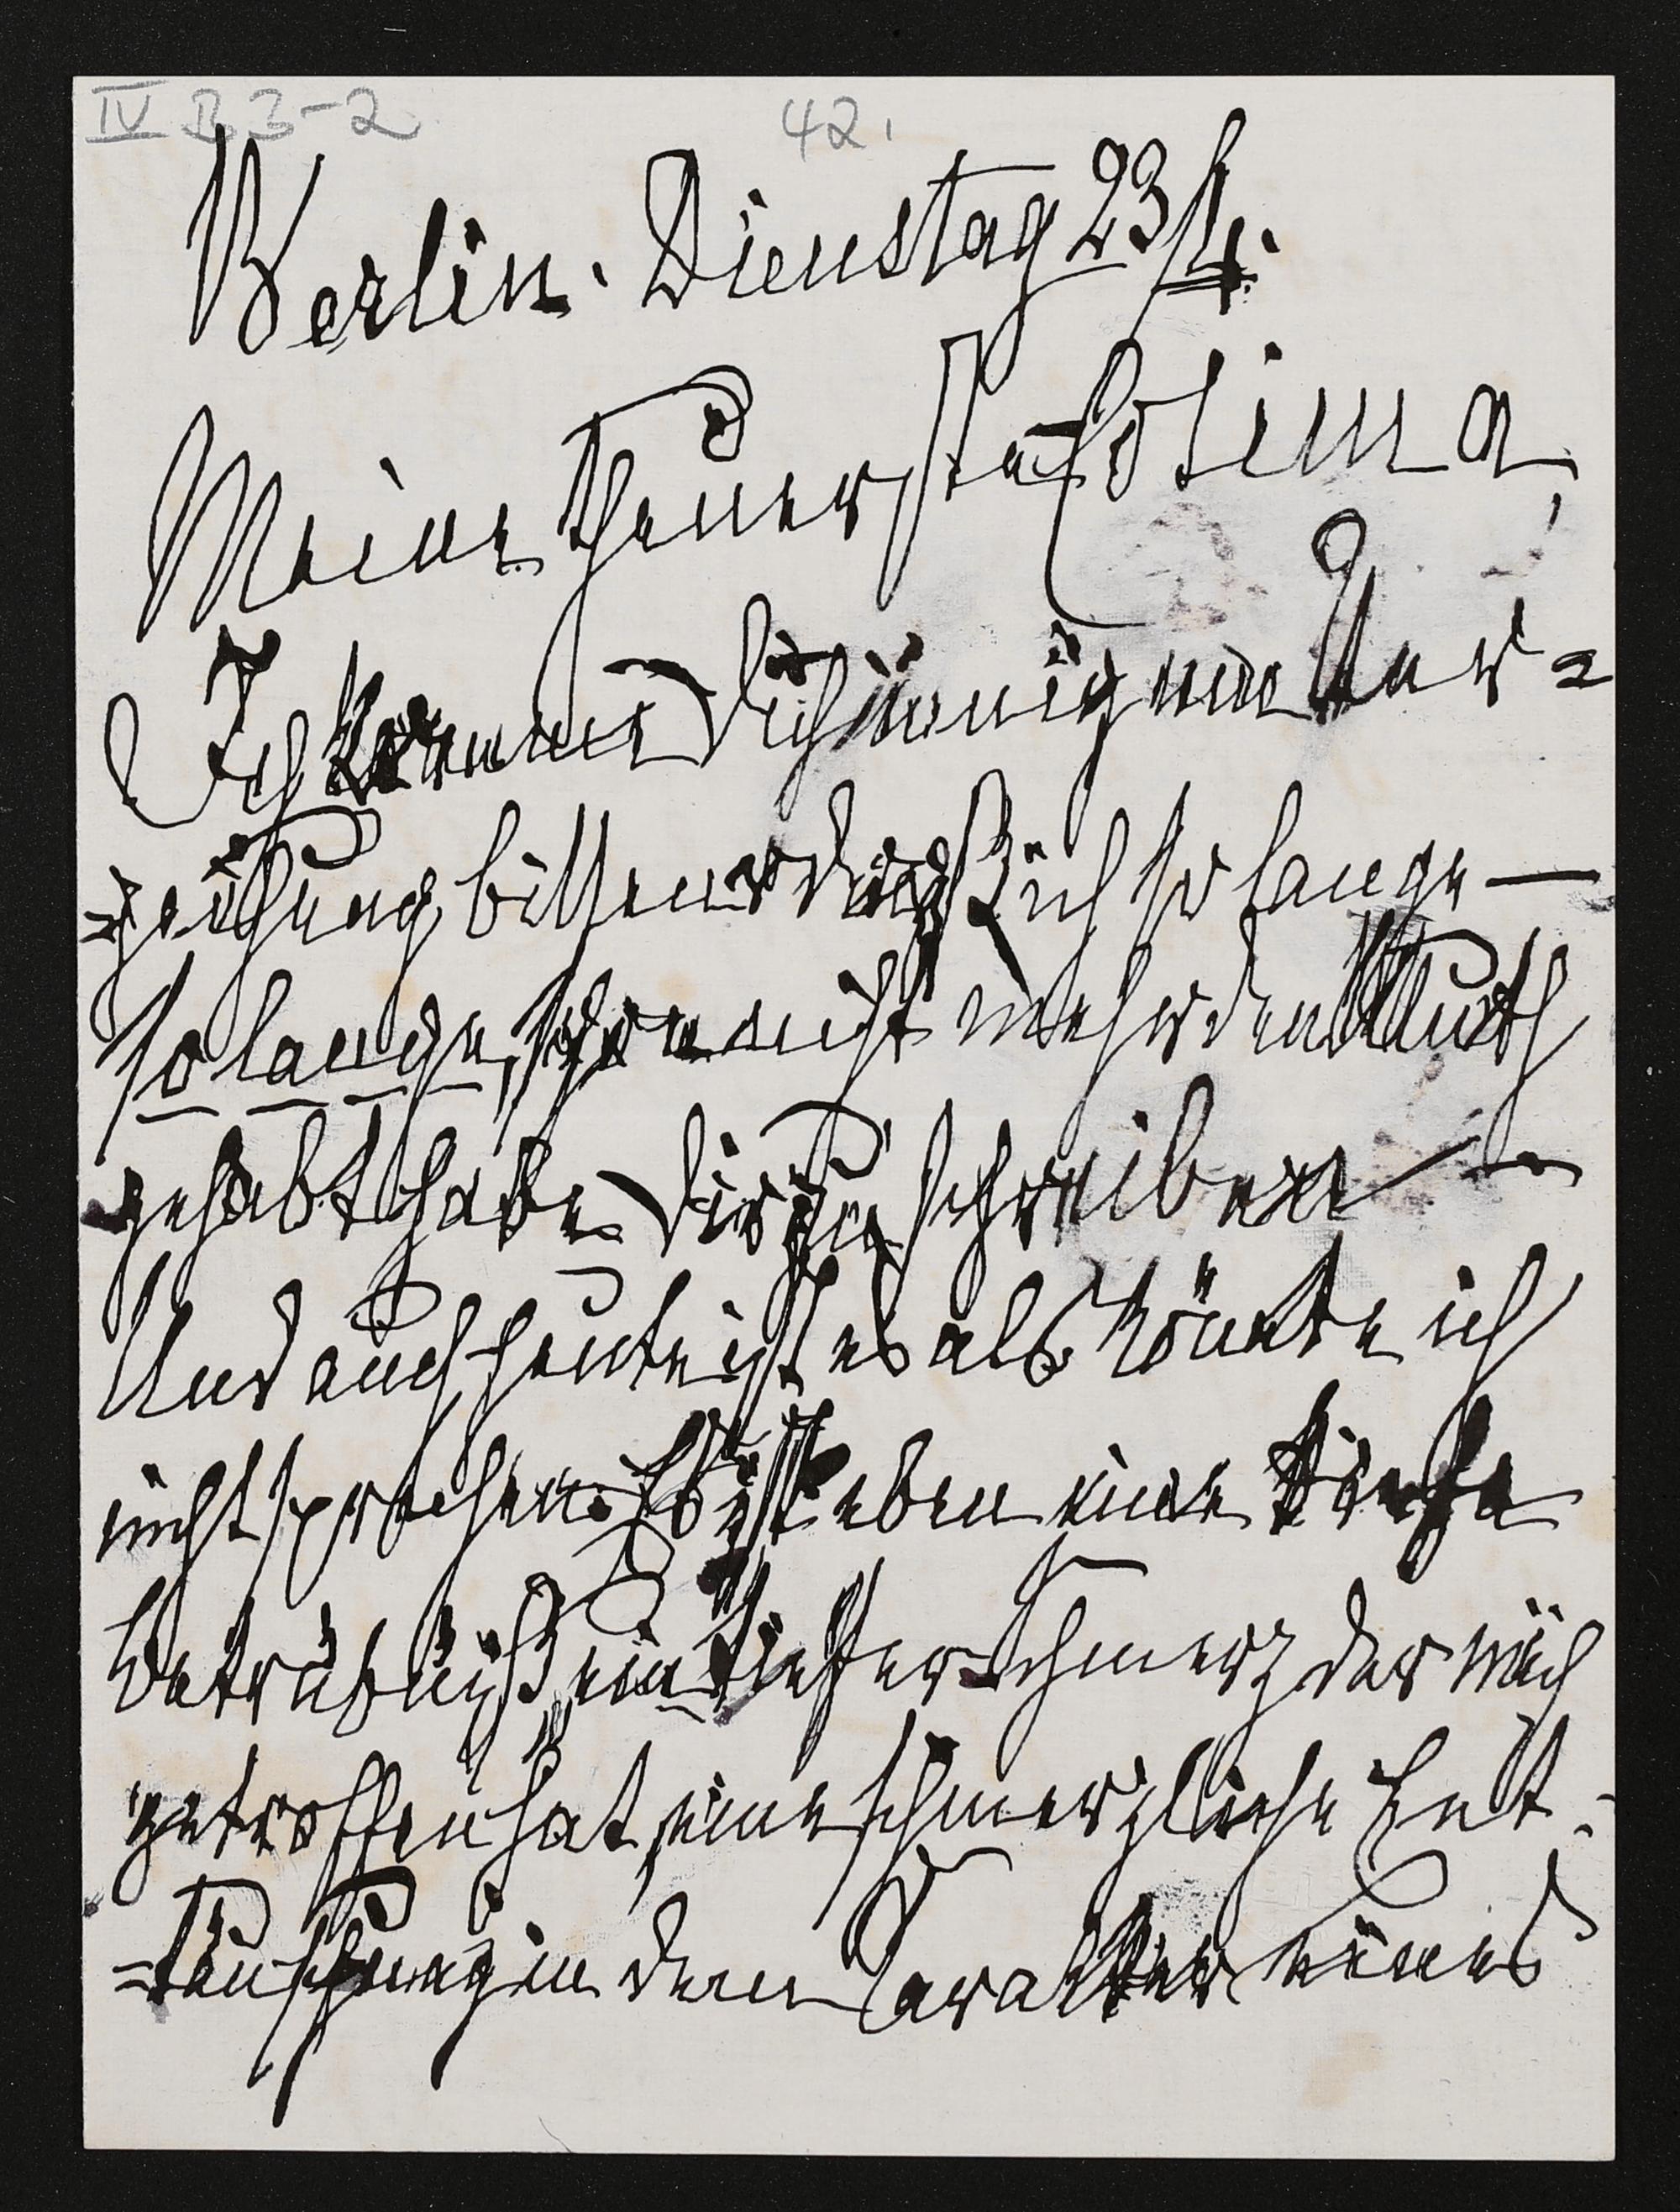 IV B 3-2
42.
Berlin. Dienstag 23/4.
Meine theuerste Cosima,
Ich komme Dich innig um Ver=
=zeihung bitten daß ich so lange —
so lange, nicht mehr den Muth
gehabt habe Dir zu schreiben —
Und auch heute ist es als könnte ich
nicht sprechen. Es ist eben eine tiefe
Betrübniß, ein tiefer Schmerz der mich
getroffen hat, eine schmerzliche Ent=
=täuschung in dem Carakter eines